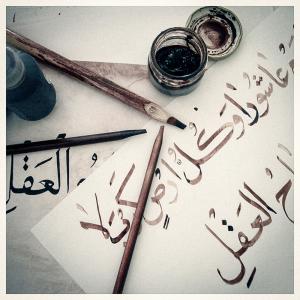 عاشورا وكُلُّ ارضٍ كربلا
العقلِ
العَقلِ